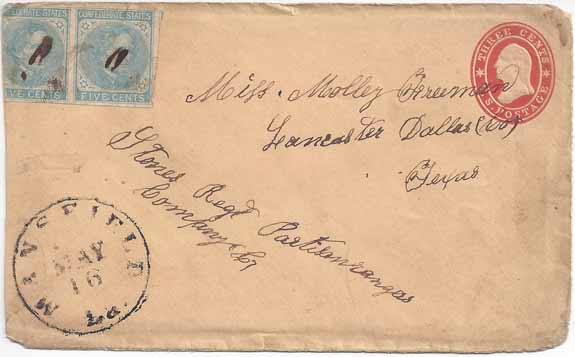 CONFEDERATE STATES CONFEDERATE STATES
FIVE CENTS FIVE CENTS
THREE CENTS
U.S. POSTAGE
Miss. Molley Freeman
Lancaster Dallas Co
Texas
Stones Regt Partisanrangas
Company
MANSFIELD
MAY
16
La.